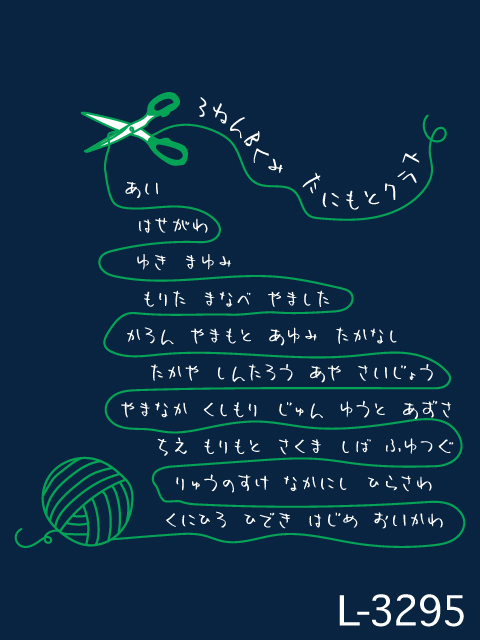 3ねんBくみ たにもとクラス
あい
はせがわ
ゆき まゆみ
もりた まなべ やました
かろん やまもと あゆみ たかなし
たかや しんたろう あや さいじょう
やまなか くしもり じゅん ゆうと あずさ
ちえ もりもと さくま しば ふゆつぐ
りゅうのすけ なかにし ひらさわ
くにひろ ひでき はじめ おいかわ
L-3295